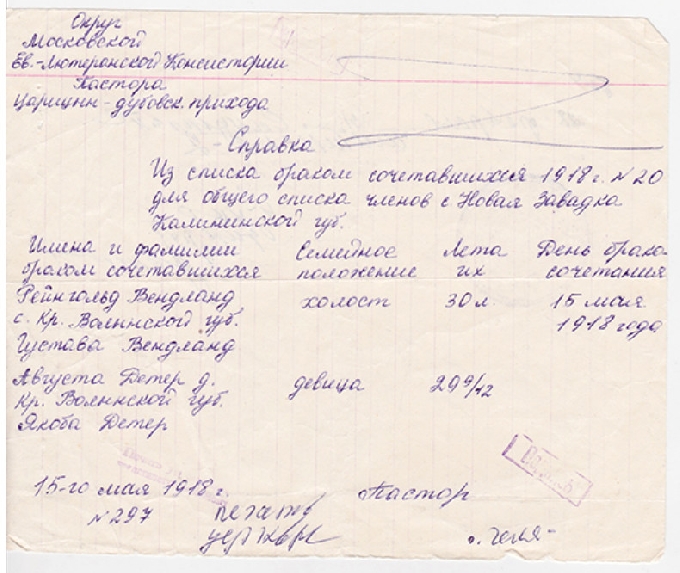 Округ
Московской
Ев.-Лютеранской Консистории
Пастора
Царицын-дубовск. прихода
- Справка
Из списка браком сочетавшихся 1918 г. N 20
для общего списка членов с Новая Завадка
Калининской губ.
Имена и фамилии Семейное Лета День брако
браком сочетавшихся положение их сочетания
Рейнгольд Вендланд холост 30 л. 15 мая
с. Кр. Волынской губ. 1918 года
Густава Вендланд
Августа Детер д. девица 29 9/12
Кр. Волынской губ.
Якоба Детер
15-го мая 1918 г. Пастор
N 297 печать
о.